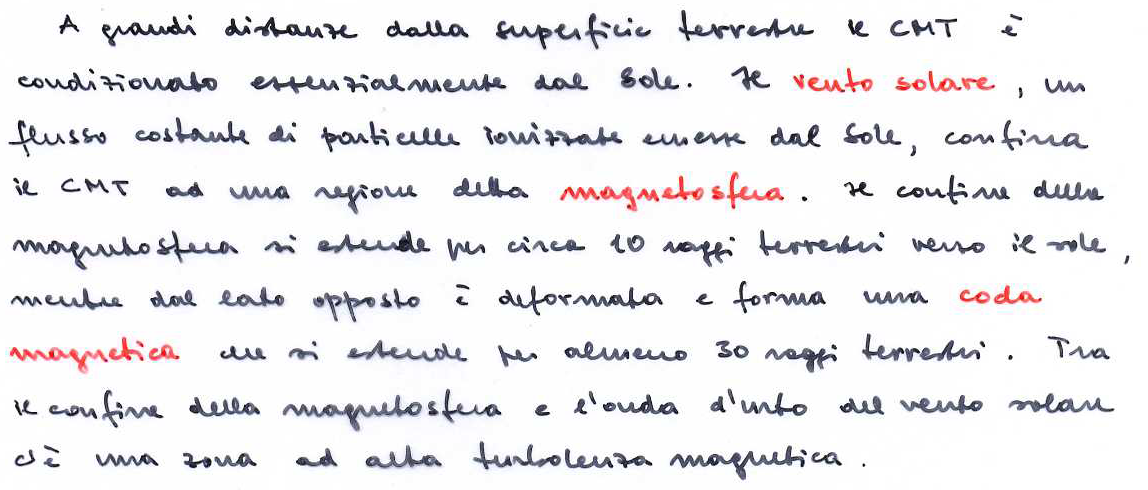 A grandi distanze dalla superficie terrestre il CMT è
condizionato essenzialmente dal Sole. Il vento solare, un
flusso costante di particelle ionizzate emesse dal Sole, confina
il CMT ad una regione detta magnetosfera. Il confine della
magnetosfera si estende per circa 10 raggi terrestri verso il sole,
mentre dal lato opposto è deformata e forma una coda
magnetica che si estende per almeno 30 raggi terrestri. Tra
il confine della magnetosfera e l'onda d'urto del vento solare
c'è una zona ad alta turbolenza magnetica.